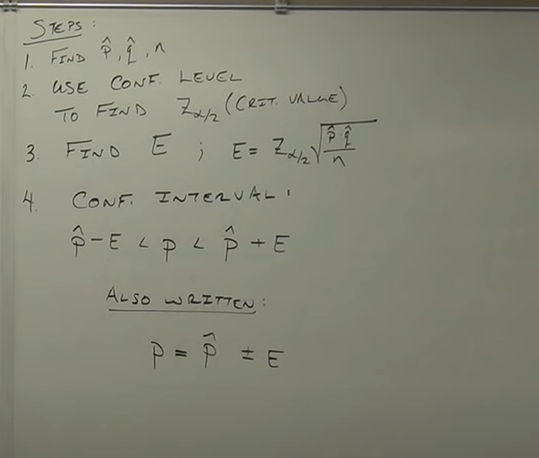 STEPS:
1. FIND p̂, q̂, n
2. USE CONF. LEVEL
TO FIND Z_α/2 (CRIT. VALUE)
3. FIND E ; E = Z_α/2 √(p̂ q̂ / n)
4. CONF. INTERVAL:
p̂ - E < p < p̂ + E
ALSO WRITTEN:
p = p̂ ± E